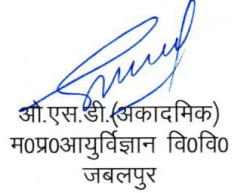 ओ.एस.डी.(अकादमिक)
म0प्र0आयुर्विज्ञान वि0वि0
जबलपुर